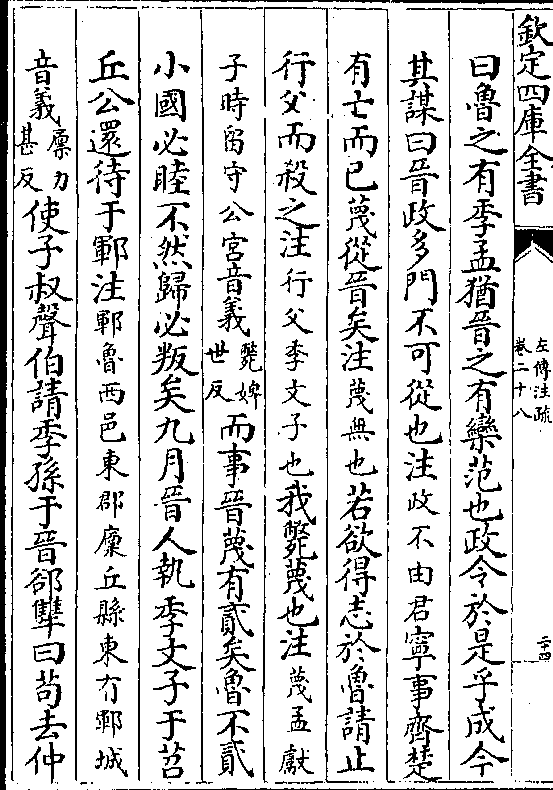 欽定四庫全書
左傳注疏
卷二十八
二十四
曰魯之有季孟猶晉之有欒范也政令於是乎成今
其謀曰晉政多門不可從也注政不由君寧事齊楚
有亡而已蔑從晉矣注蔑無也若欲得志於魯請止
行父而殺之注行父季文子也我斃蔑也注蔑孟獻
子時留守公宮音義斃婢世反而事晉蔑有貳矣魯不貳
小國必睦不然歸必叛矣九月晉人執季文子于苕
丘公還待于鄆注鄆魯西邑東郡廩丘縣東有鄆城
音義廩力甚反使子叔聲伯請季孫于晉郤犨曰苟去仲